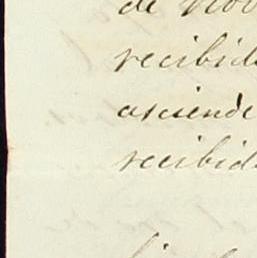 de Nov
recibid
asciende
recibid